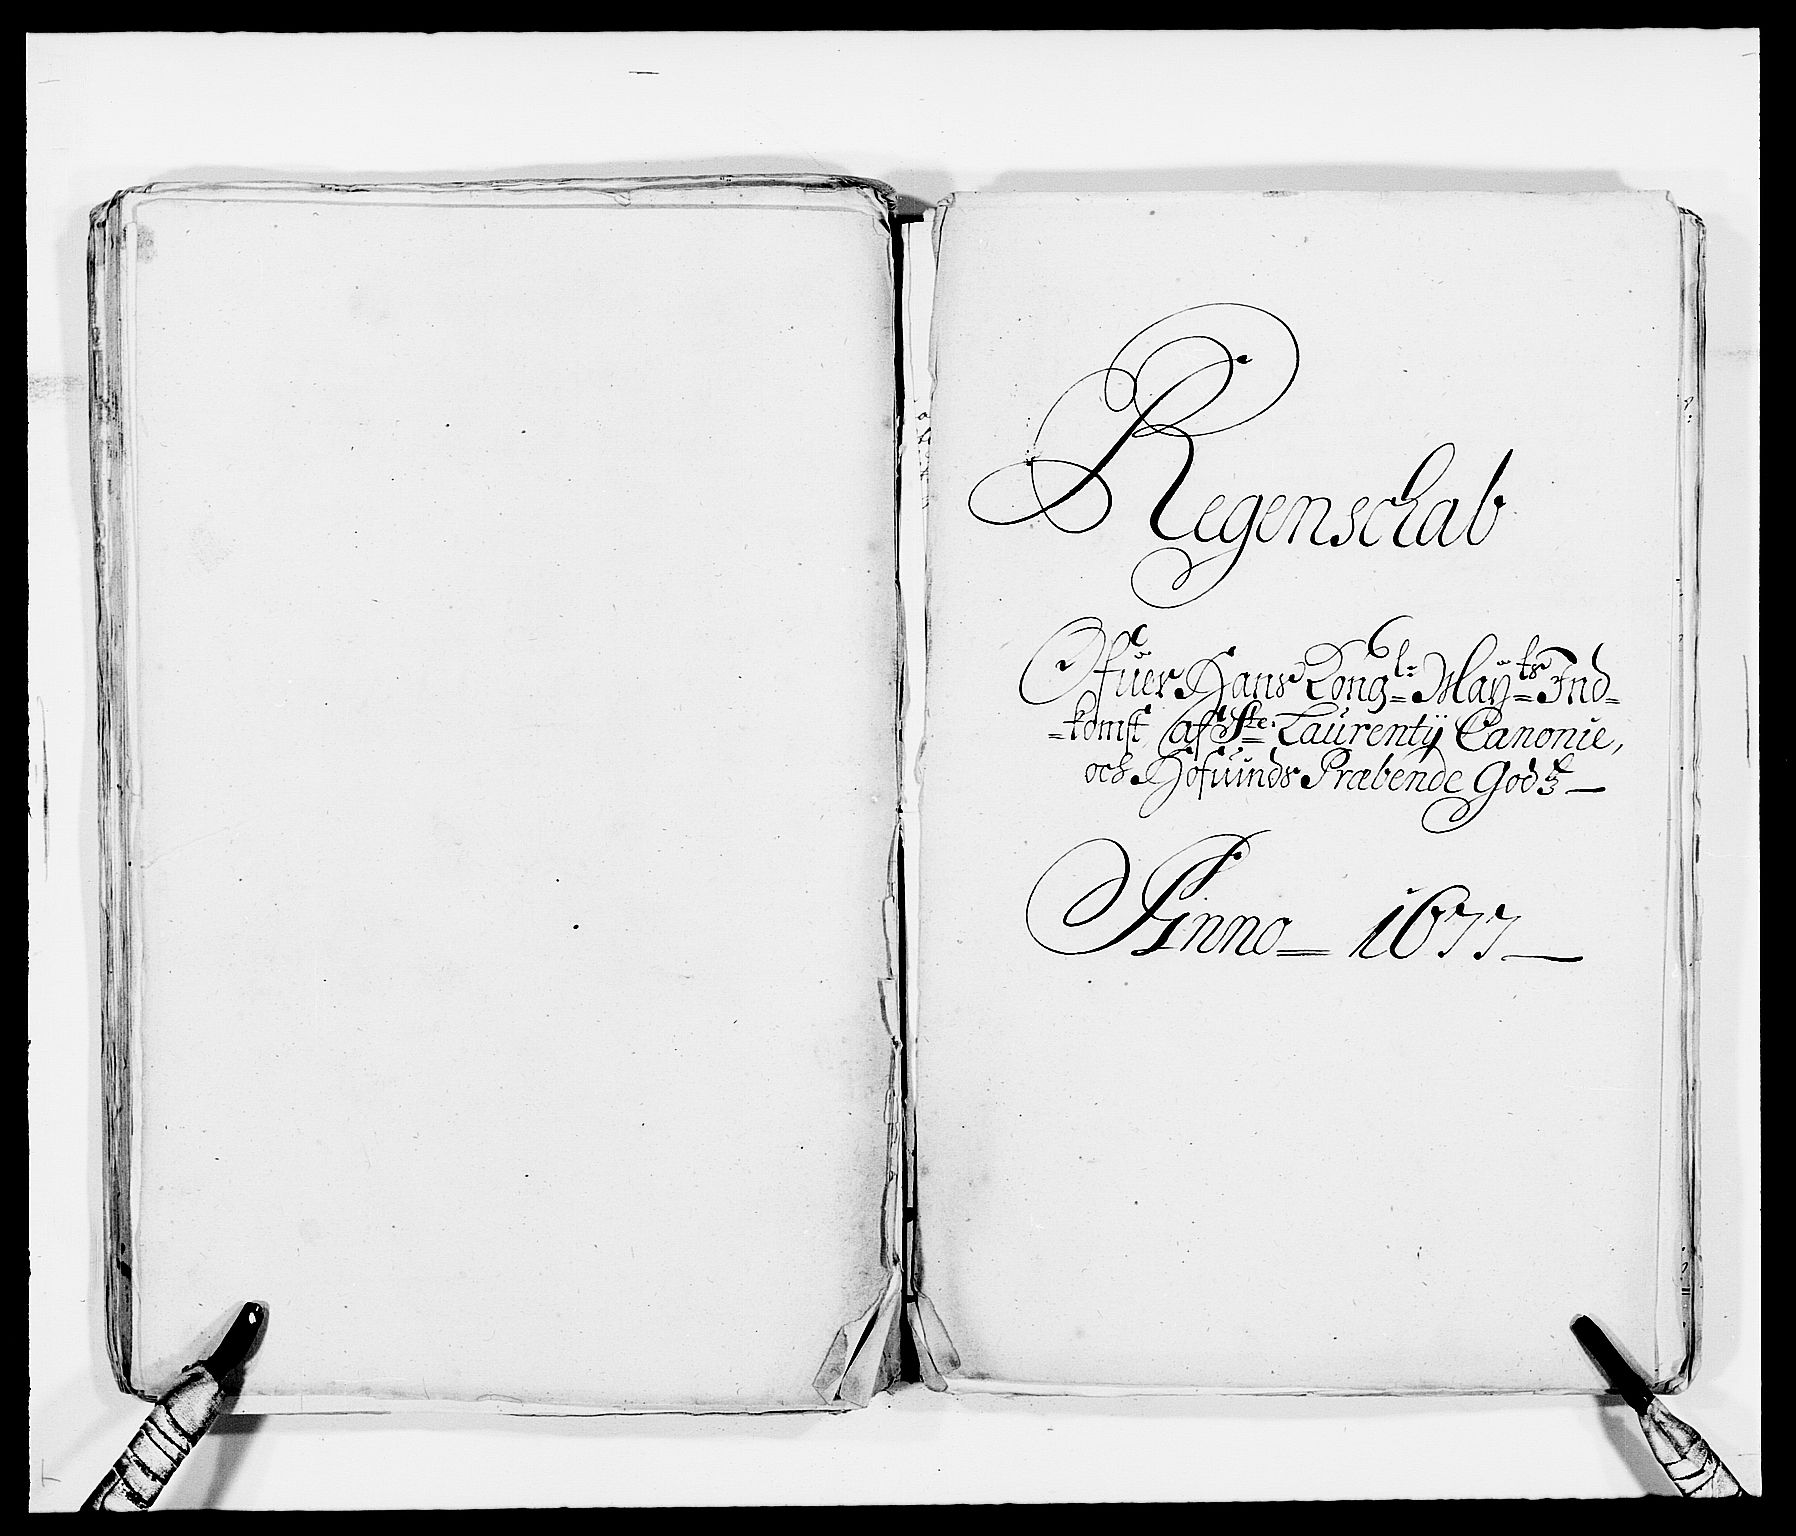 Regenschab
Ofuer Hans Kongl: Mayts Ind-
-komst af Ste: Laurentij Canonie,
och Hofuinds Præbende Godtz
Anno 1677